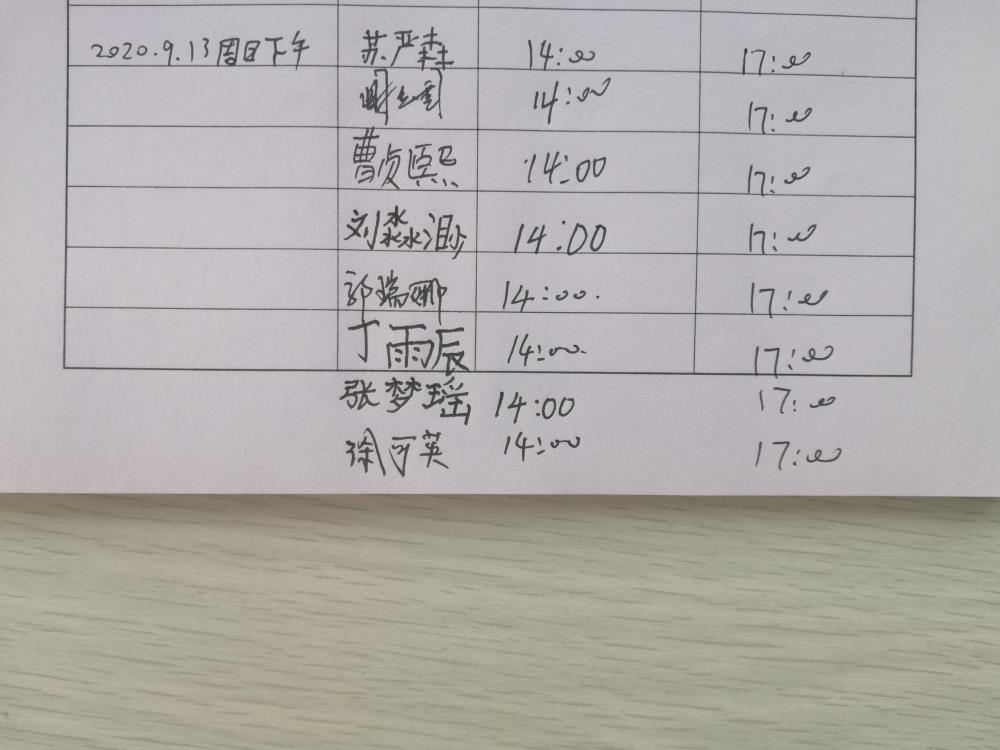 2020.9.13周日下午 苏严森 14:00 17:00
14:00 17:00
曹贞熙 14:00 17:00
刘淼 14:00 17:00
郭瑞娜 14:00. 17:00
丁雨辰 14:00. 17:00
张梦瑶 14:00 17:00
徐可英 14:00 17:00